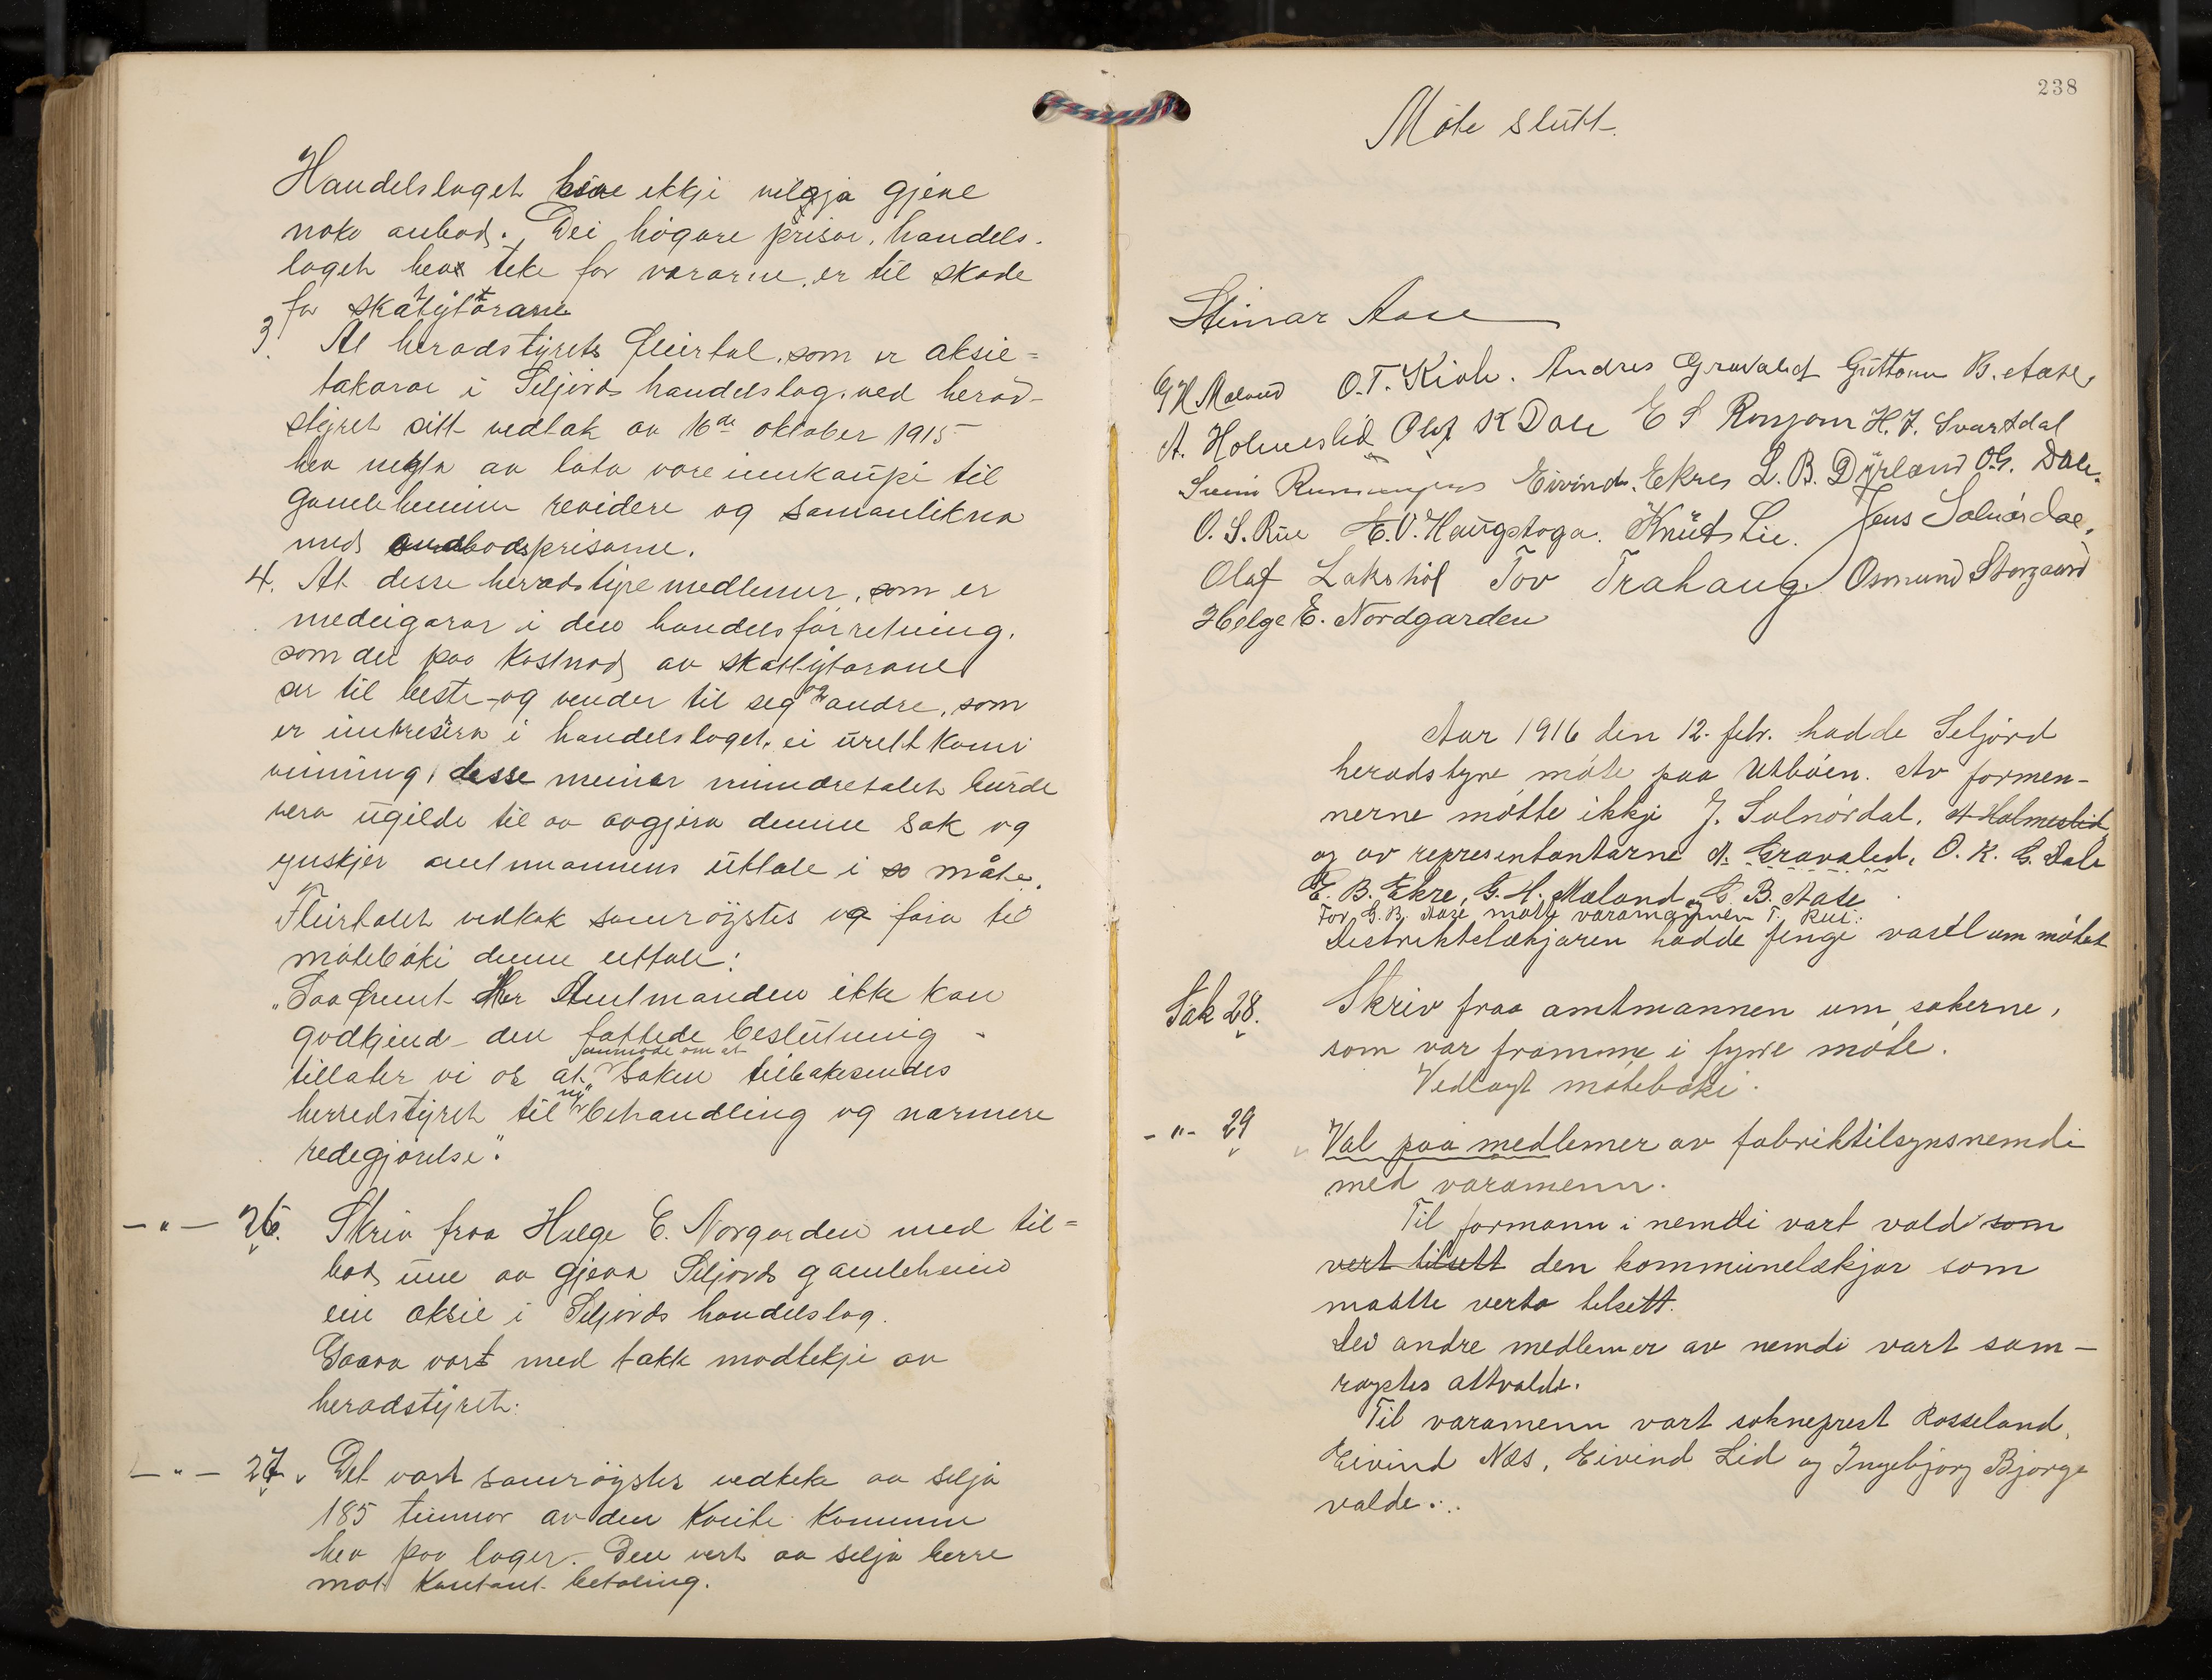 Handelslaget hev ikkje vilja gjeve
noko anbod. Dei høgare prisar, handels-
laget hev teke for vararne, er til skade
for skatytarane
3. At heradstyrets fleirtal, som er aksie=
takarar i Seljords handelslag, ved herad-
styret sitt vedtak av 16de oktober 1915
hev negta av lata vareinnkaupi til
gamleheimen revidere og samanlikna
med anbodsprisarne.
4. At desse heradstyremedlemer, som er
medeigarar i den handelsforretning,
som dei paa kostnad av skattytarane
ser til beste og vender til seg og andre, som
er intresera i handelslaget, ei urett komi
vinning, desse meiner mindretalet burde
vera ugilde til aa avgjera denne sak og
ynskjer amtmannens uttale i so måte.
Fleirtalet vedtok samrøystes og føra til
møteboki denne uttale:
"Saafremt Her Amtmanden ikke kan
godkjend den fattede beslutning
anmode om at
tillater vi os at saken tilbakesendes
ny
herredstyret til behandling og nærmere
redegjørelse".
-"- 26. Skriv fraa Helge E. Norgarden med til=
bod une aa gjeva Seljords gamleheim
ein aksie i Seljords handelslag.
Gaava vart med takk modtekje av
heradstyret.
-"- 27. Det vart samrøystes vedteke aa selja
185 tunnor av den kveite kommunen
hev paa lager. Den vert aa selja berre
mot kontant betaling.
238
Møte slutt.
Steinar Aase
G H Maland O.T. Kivle. Andres Gravalid Guttorm B. Aase
A. Holmeslid Olaf K Dale E S Ronjom H. J. Svartdal
Eivind. Ekres L. B. Dyrland O.G. Dale.
O. S. Rue E.O. Haugstoga. Knut Lie. Jens Solnørdal.
Olaf Lakshol Tov Trahaug Osmund Storgaard
Helge E. Nordgarden
Aar 1916 den 12. febr. hadde Seljord
heradstyre møte paa Utbøen. Av formen-
nerne møtte ikkje J. Solnørdal, A Holmeslid,
og av representantarne A. Gravalid, O. K. G. Dale
E. B. Ekre, G. H. Maland og G. B. Aase
For G. B. Aase møtte varamannen T. Rue.
Distriktslækjaren hadde fenge varsl um møtet
Sak 28. Skriv fraa amtmannen um sakerne,
som var framme i fyrre møte.
Vedlagt møteboki.
-"- 29 Val paa medlemer av fabriktilsynsnemdi
med varamenn.
Til formann i nemdi vart vald som
vert tilsett den kommunelækjar som
maatte verta tilsett.
Dei andre medlemer av nemdi vart sam-
røystes attvalde.
Til varamenn vart sokneprest Rosseland,
Eivind Næs, Eivind Lid og Ingebjørg Bjørge
valde.